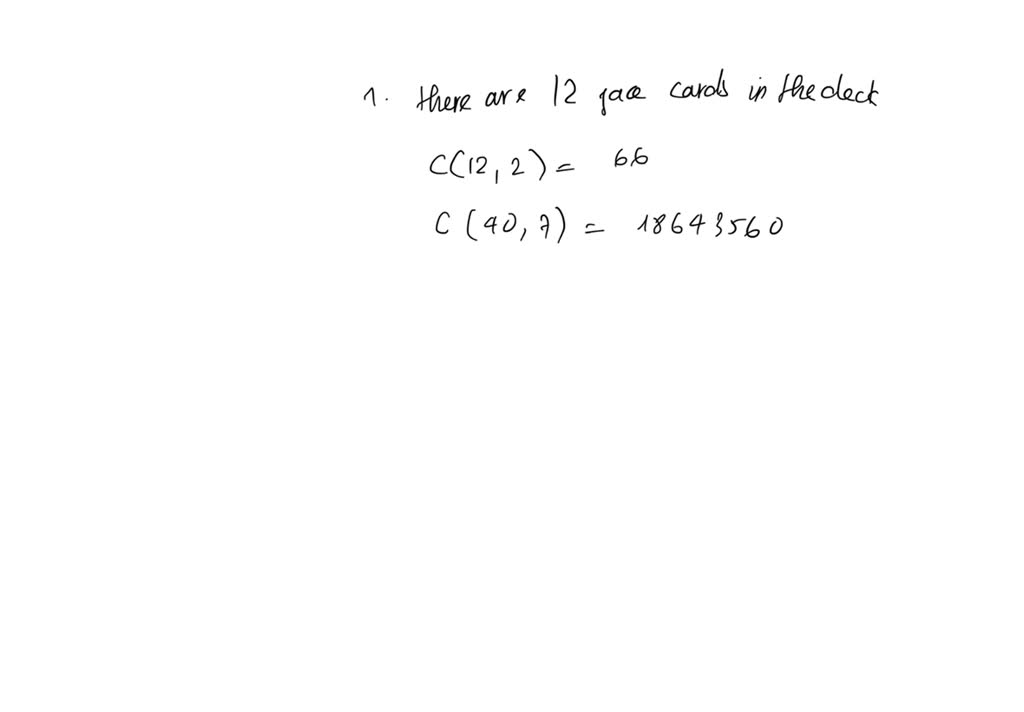 1. there are 12 face cards in the deck
C(12, 2) = 66
C(40, 7) = 18643560